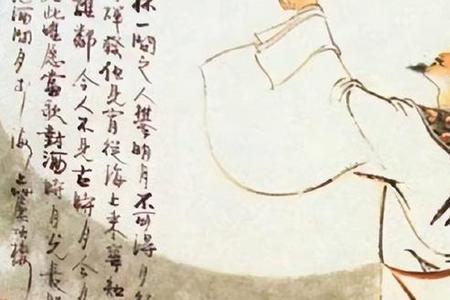 杯一問之人攀明月不可得月
輝發但見宵從海上來寧知
誰鄰今人不見古時月今
此唯愿當歌對酒時月光長照
酒問月